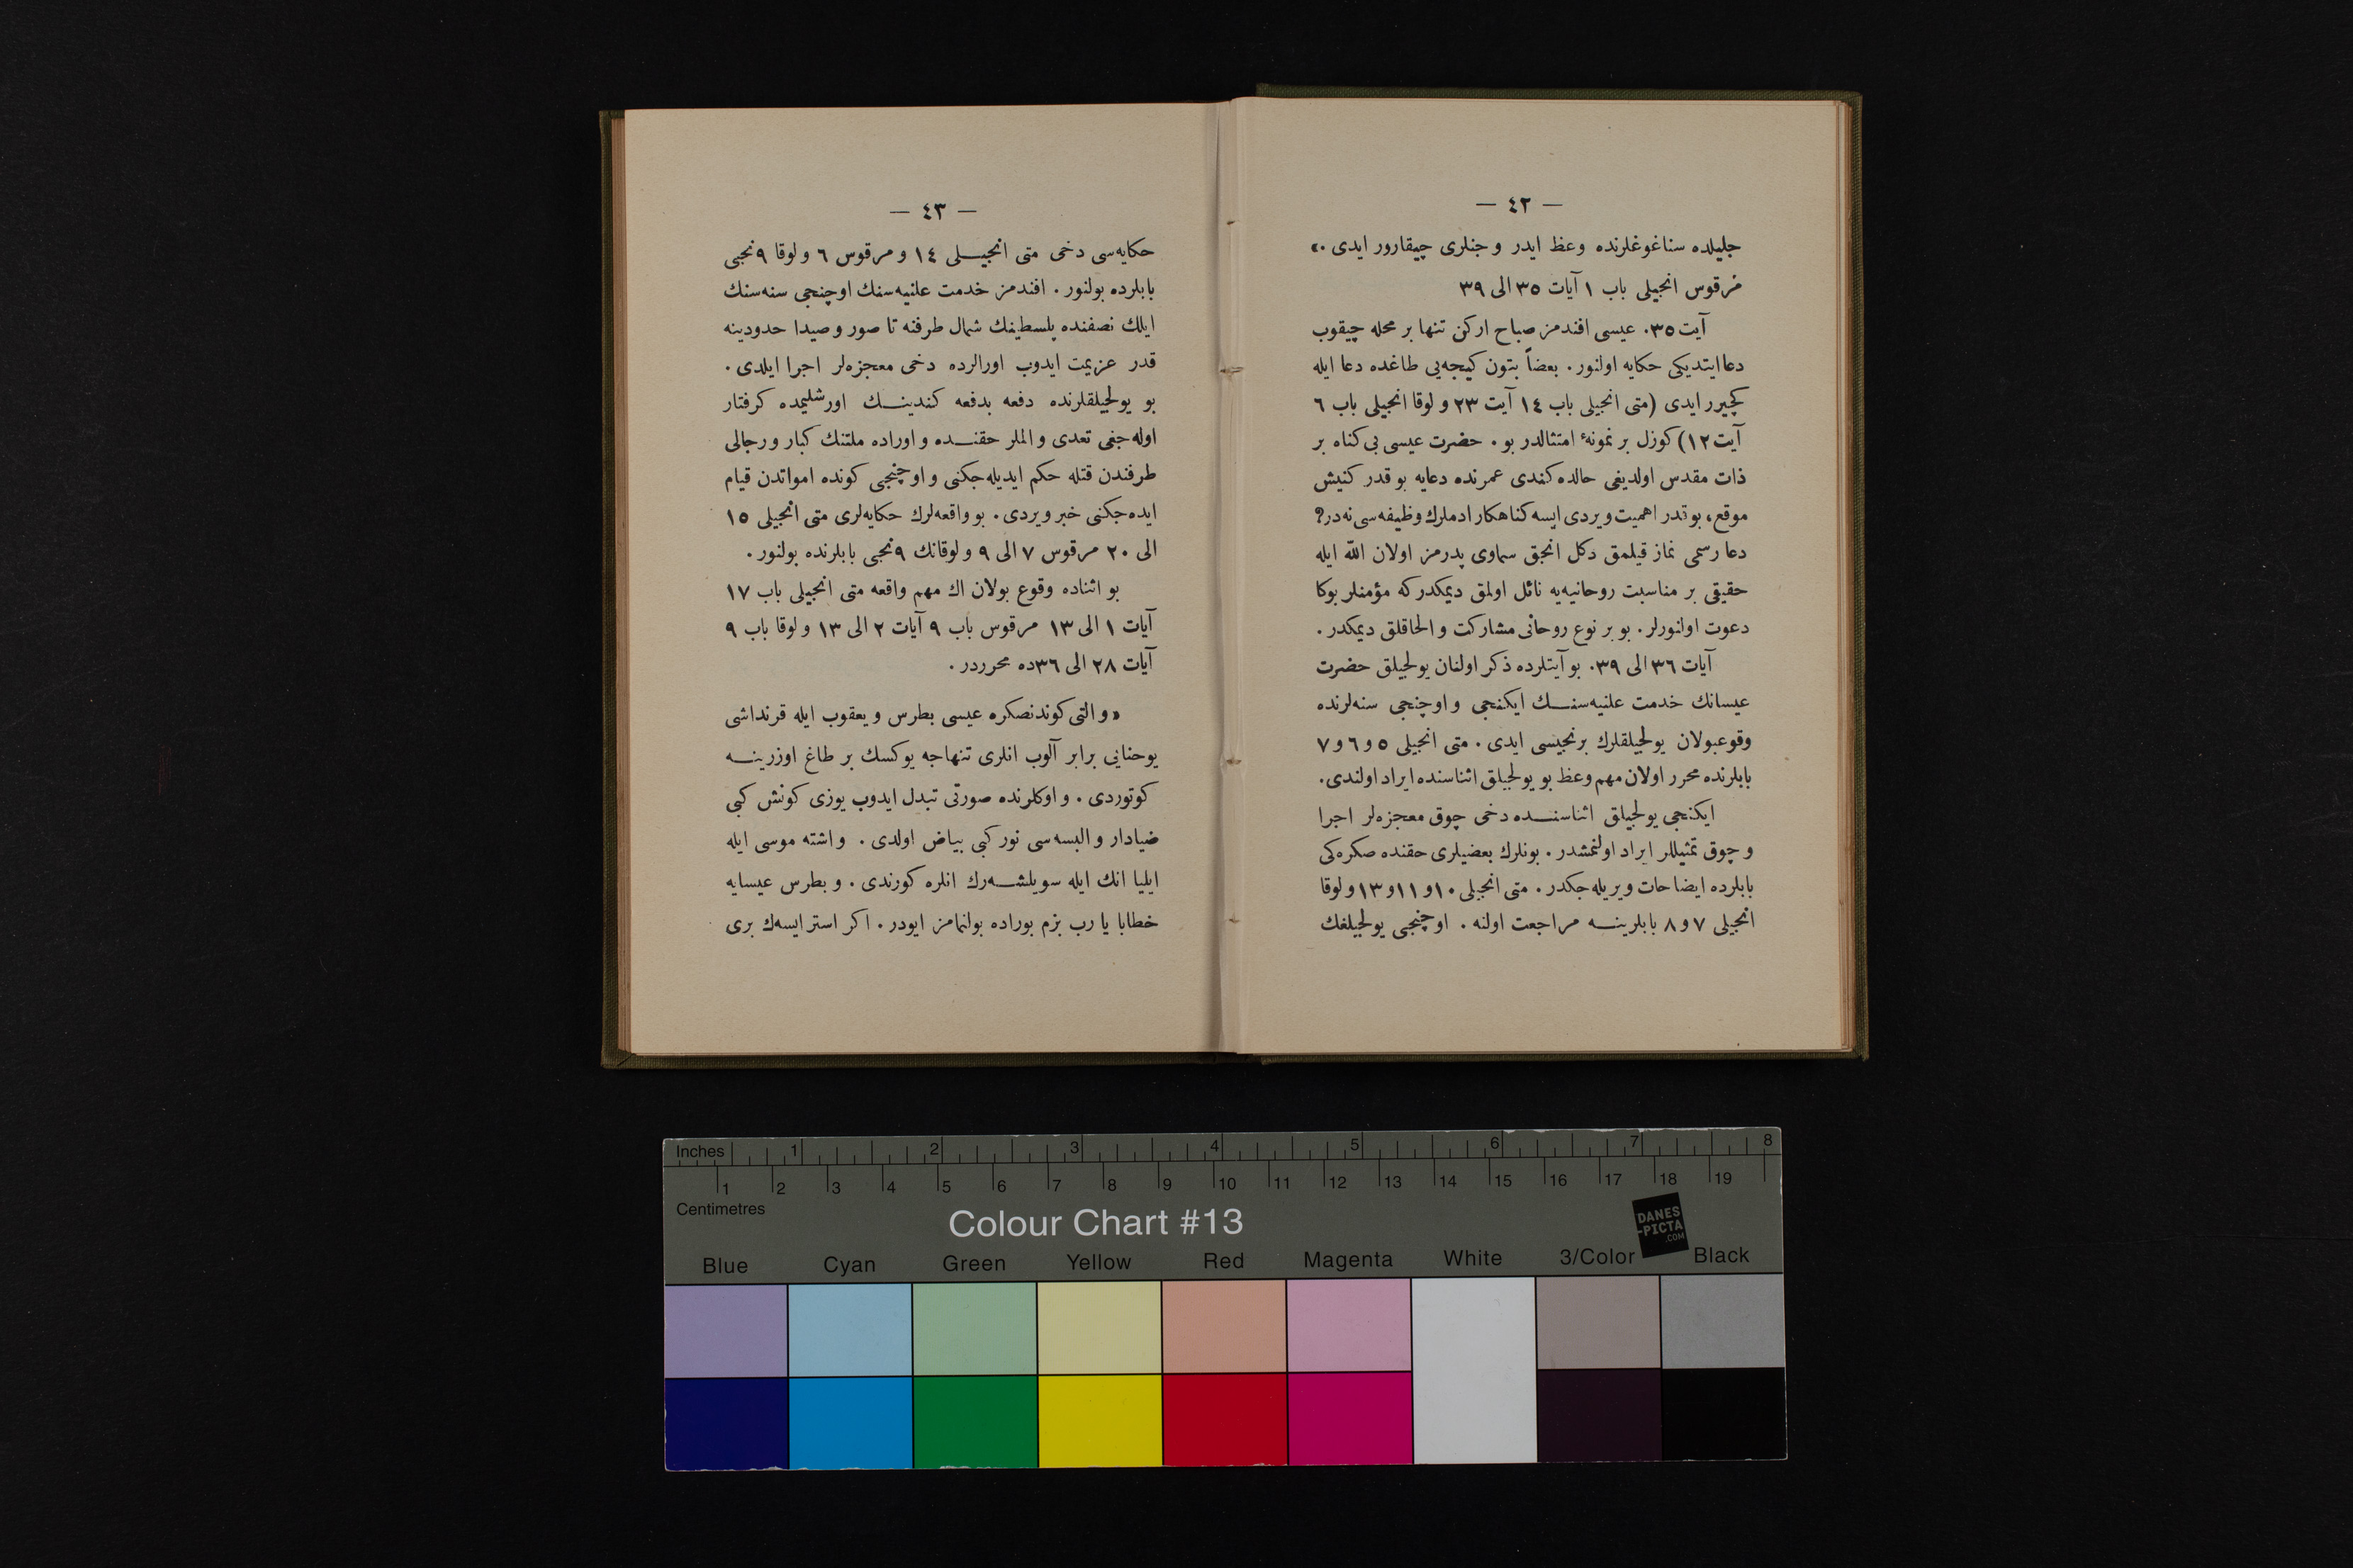 — ٤٢ —
جليلده سناغوغلرنده وعظ ايدر و جنلرى چيقارور ايدى .»
مرقوس انجيلى باب ١ آيات ٣٥ الى ٣٩
آيت ٣٥. عيسى افندمز صباح اركن تنها بر محله چيقوب
دعا ايتديكى حكايه اولنور . بعضاً بتون كيجه‌يى طاغده دعا ايله
كچيرر ايدى (متى انجيلى باب ١٤ آيت ٢٣ و لوقا انجيلى باب ٦
آيت ١٢) كوزل بر نمونهٔ امتثالدر بو . حضرت عيسى بى كناه بر
ذات مقدس اولديغى حالده كندى عمرنده دعايه بو قدر كنيش
موقع، بو قدر اهميت ويردى ايسه كناهكار ادملرك وظيفه‌سى نه‌در؟
دعا رسمى نماز قيلمق دكل انجق سماوى پدرمز اولان الله ايله
حقيقى بر مناسبت روحانيه‌يه نائل اولمق ديمكدر كه مؤمنلر بوكا
دعوت اولنورلر . بو بر نوع روحانى مشاركت و الحاقلق ديمكدر .
آيات ٣٦ الى ٣٩. بو آيتلرده ذكر اولنان يولجيلق حضرت
عيسانك خدمت علنيه‌سنك ايكنجى و اوچنجى سنه‌لرنده
وقوعبولان يولجيلقلرك برنجيسى ايدى . متى انجيلى ٥ و ٦ و ٧
بابلرنده محرر اولان مهم وعظ بو يولجيلق اثناسنده ايراد اولندى.
ايكنجى يولجيلق اثناسنده دخى چوق معجزه‌لر اجرا
و چوق تمثيللر ايراد اولنمشدر . بونلرك بعضيلرى حقنده صكره‌كى
بابلرده ايضاحات ويريله‌جكدر . متى انجيلى ١٠ و ١١ و ١٣ و لوقا
انجيلى ٧ و ٨ بابلرينه مراجعت اولنه . اوچنجى يولجيلغك
— ٤٣ —
حكايه‌سى دخى متى انجيلى ١٤ و مرقوس ٦ و لوقا ٩نجى
بابلرده بولنور . افندمز خدمت علنيه‌سنك اوچنجى سنه‌سنك
ايلك نصفنده پلسطينك شمال طرفنه تا صور و صيدا حدودينه
قدر عزيمت ايدوب اورالرده دخى معجزه‌لر اجرا ايلدى .
بو يولجيلقلرنده دفعه بدفعه كندينك اورشليمده كرفتار
اوله‌جغى تعدى و الملر حقنده و اوراده ملتنك كبار و رجالى
طرفندن قتله حكم ايديله‌جكنى و اوچنجى كونده امواتدن قيام
ايده‌جكنى خبر ويردى . بو واقعه‌لرك حكايه‌لرى متى انجيلى ١٥
الى ٢٠ مرقوس ٧ الى ٩ و لوقانك ٩نجى بابلرنده بولنور .
بو اثناده وقوع بولان اك مهم واقعه متى انجيلى باب ١٧
آيات ١ الى ١٣ مرقوس باب ٩ آيات ٢ الى ١٣ و لوقا باب ٩
آيات ٢٨ الى ٣٦ده محرردر .
« و التى كوندنصكره عيسى بطرس و يعقوب ايله قرنداشى
يوحنايى برابر آلوب انلرى تنهاجه يوكسك بر طاغ اوزرينه
كوتوردى . و اوكلرنده صورتى تبدل ايدوب يوزى كونش كبى
ضيادار و البسه‌سى نور كبى بياض اولدى . و اشته موسى ايله
ايليا انك ايله سويلشه‌رك انلره كورندى . و بطرس عيسايه
خطابا يا رب بزم بوراده بولنمامز ايودر . اكر استر ايسه‌ك برى
Inches 1 2 3 4 5 6 7 8
1 2 3 4 5 6 7 8 9 10 11 12 13 14 15 16 17 18 19
Centimetres
Colour Chart #13
DANES
-PICTA
.COM
Blue Cyan Green Yellow Red Magenta White 3/Color Black